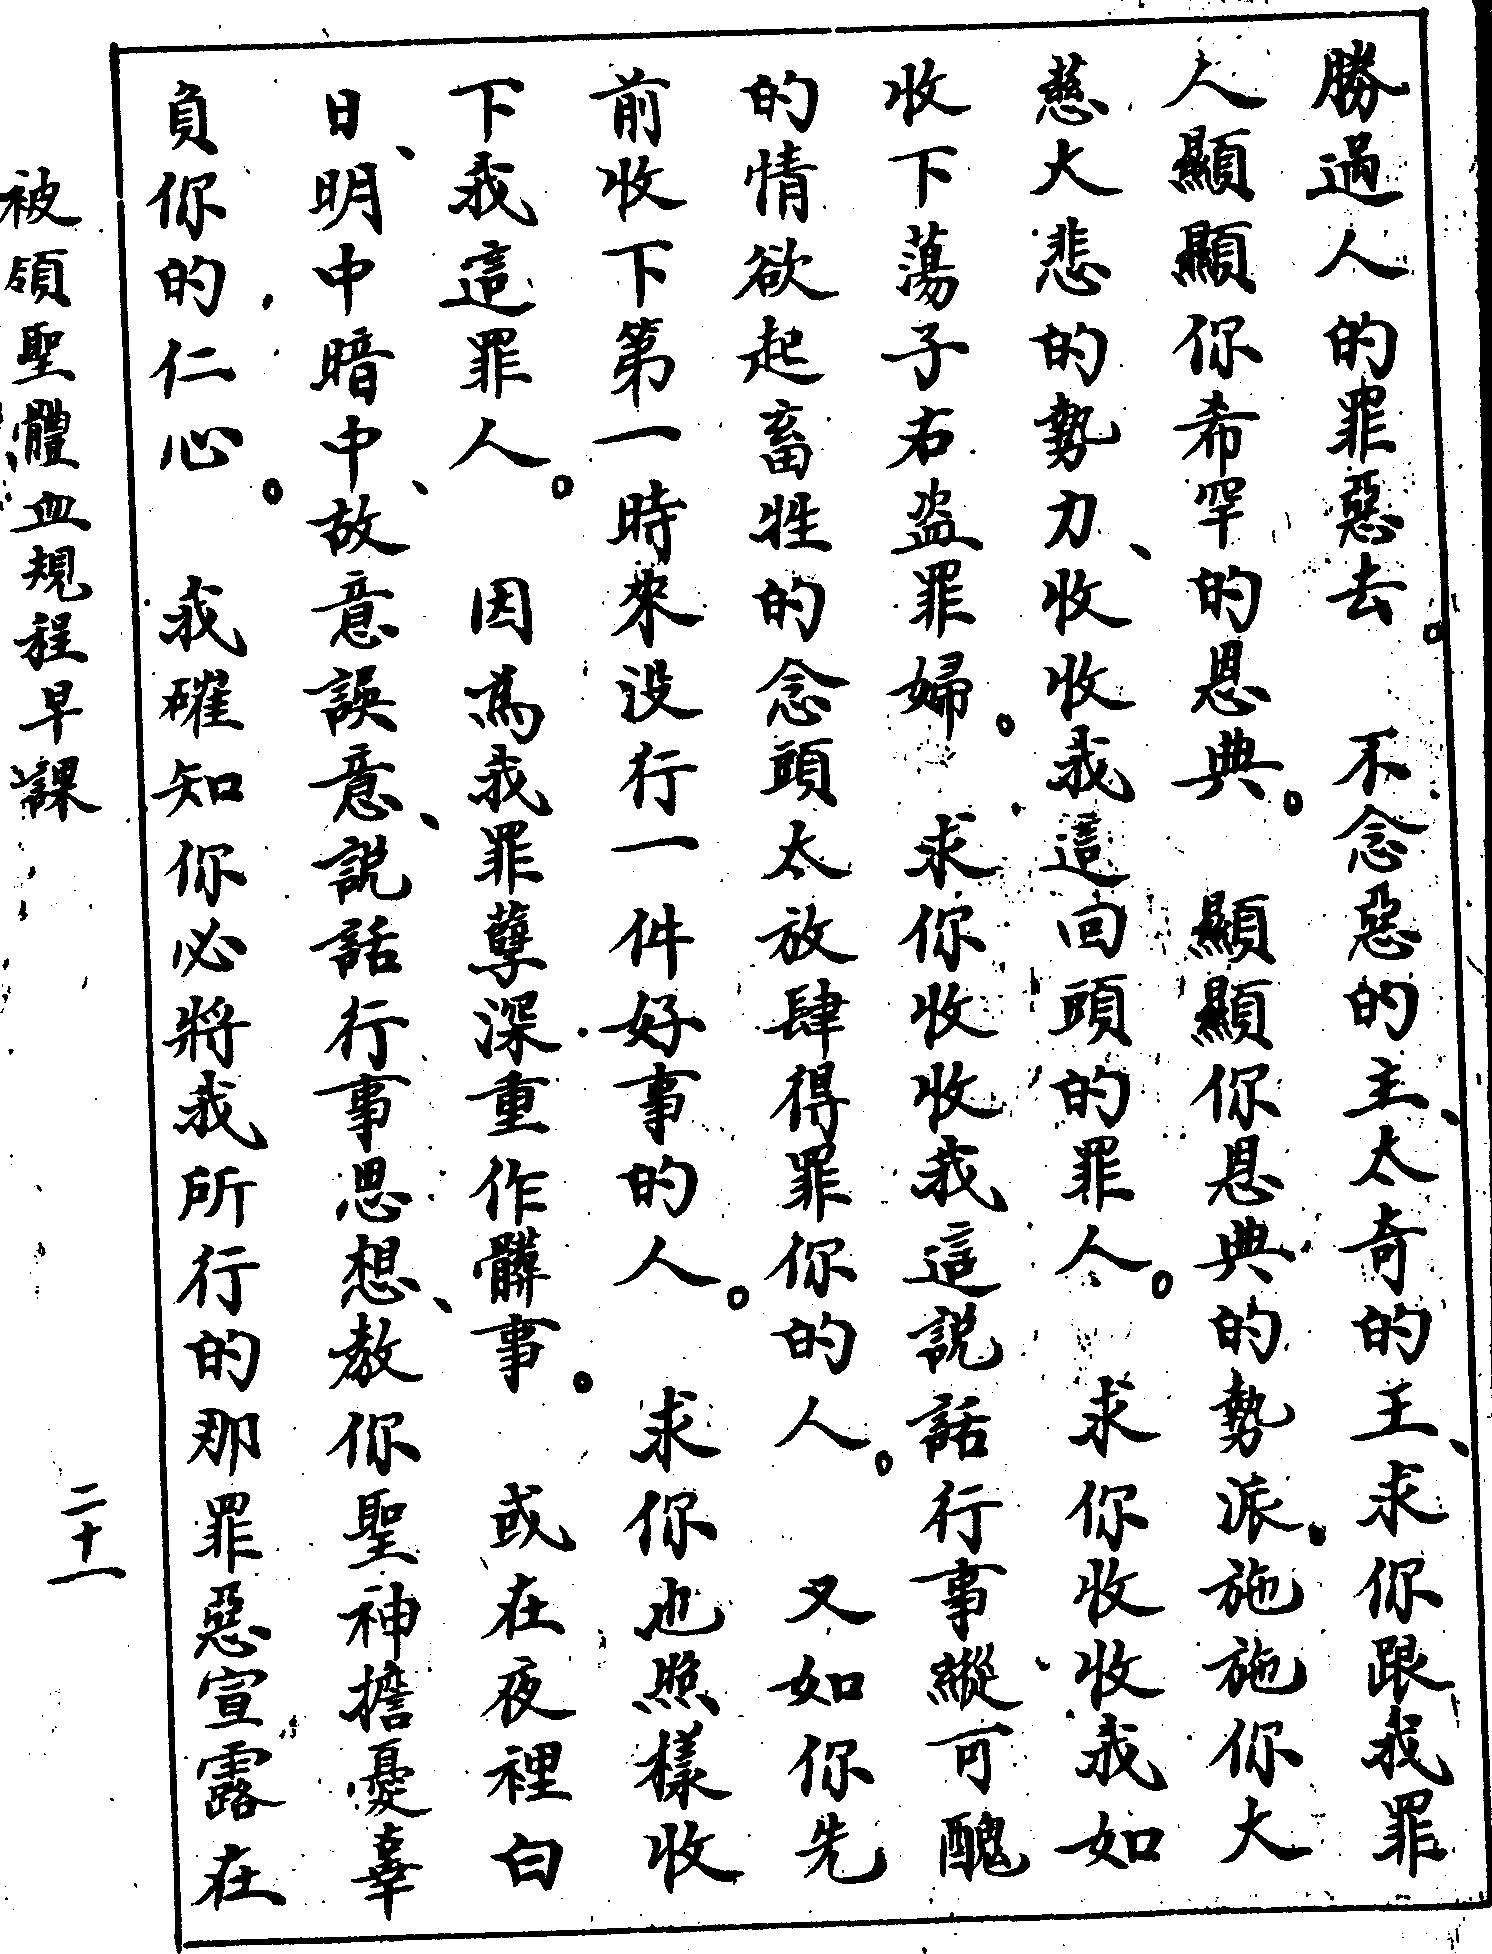 勝過人的罪惡去。不念惡的主、太奇的王、求你跟我罪
人顯顯你希罕的恩典。顯顯你恩典的勢派。施施你大
慈大悲的勢力、收收我這回頭的罪人。求你收收我如
收下蕩子右盜罪婦。求你收收我這説話行事縱可醜
的情欲起畜牲的念頭太放肆得罪你的人。又如你先
前收下第一時來没行一件好事的人。求你也照樣收
下我這罪人。因爲我罪孽深重作髒事。或在夜裡白
日、明中暗中、故意誤意、説話行事思想、敖你聖神擔憂辜
負你的仁心。我確知你必將我所行的那罪惡宣露在
被領聖體血規程早課
二十一